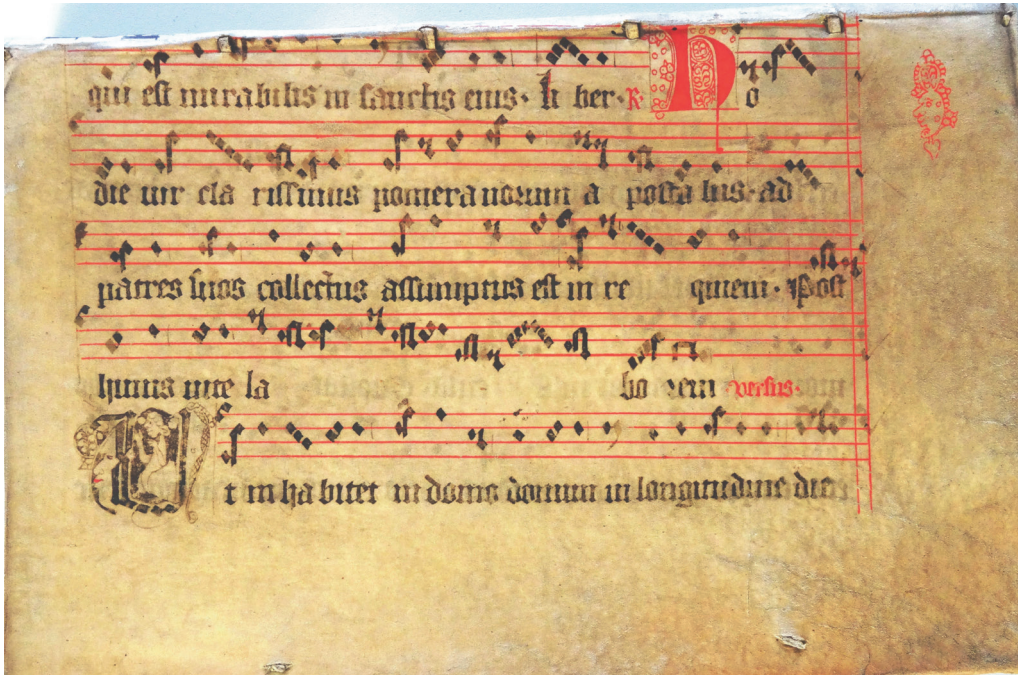 qui est mirabilis in sanctis eius. li ber. R. Ho
die uir cla rissimus pomeranorum a posto lus ad
patres suos collectus assumptus est in re quiem. Post
huius uite la bo rem versus.
Ut in ha bitet in domo domini in longitudine die